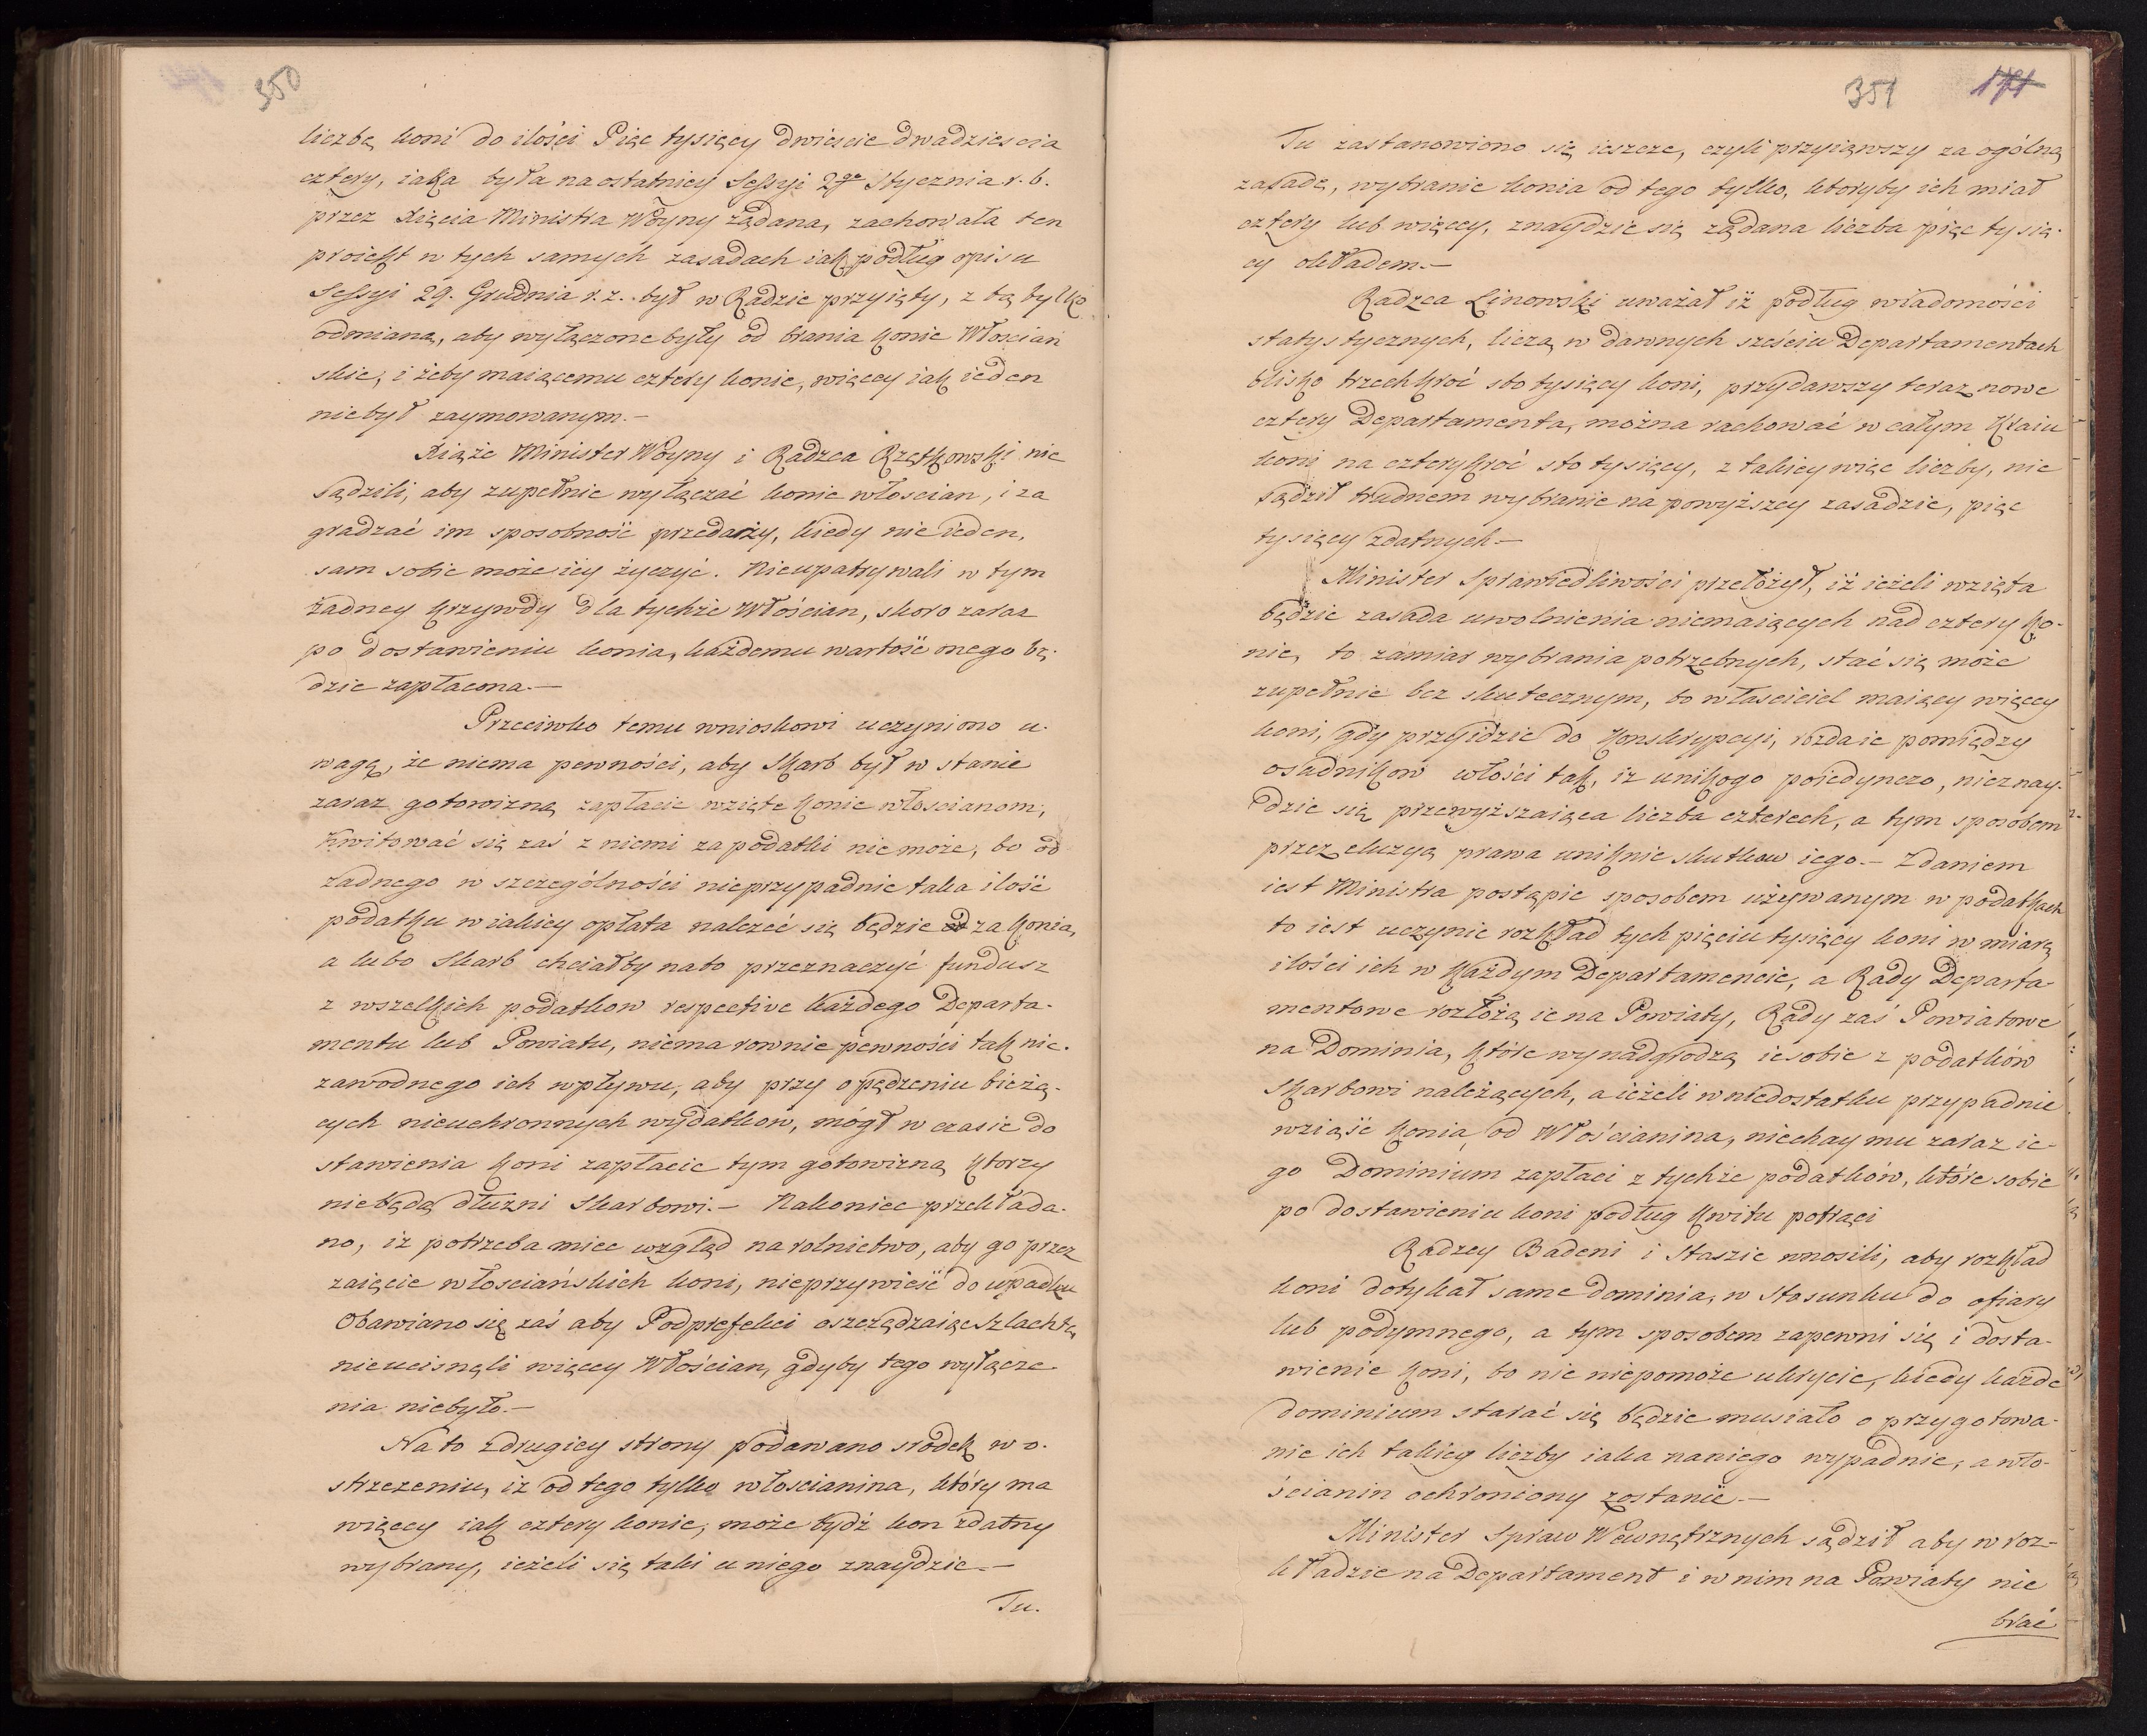 350
liczbę koni do ilości Pięc tysięcy dwieście dwadzieścia
cztery, iaka była na ostatniey Sessyi 2go Stycznia r. b.
przez Xięcia Ministra Woyny żądana, zachowała ten
proiekt w tych samych zasadach iak podług opisu
Sessyi 29. Grudnia r. z. był w Radzie przyięty, z tą tylko
odmianą, aby wyłączone były od brania konie Włoscian
skie, i żeby maiącemu cztery konie, więcey iak ieden
niebył zaymowanym.—
Xiąże Minister Woyny i Radzca Rzętkowski nie
sądzili, aby zupełnie wyłączać konie włoscian, i za
gradzać im sposobność przedaży, kiedy nie ieden,
sam sobie może iey życzyć. Nieupatrywali w tym
żadney krzywdy dla tychże Włościan, skoro zaraz
po dostawieniu konia, każdemu wartość onego bę-
dzie zapłacona.—
Przeciwko temu wnioskowi uczyniono u-
wagę, że niema pewności, aby Skarb był w stanie
zaraz gotowizną zapłacic wzięte konie włoscianom,
Kwitować się zaś z niemi za podatki nie może, bo od
żadnego w szczególności nieprzypadnie taka ilość
podatku w iakiey opłata należeć się będzie za konia,
a lubo Skarb chciałby nato przeznaczyć fundusz
z wszelkich podatkow respective każdego Departa-
mentu lub Powiatu, niema rownie pewności tak nie-
zawodnego ich wpływu, aby przy opędzeniu bieżą-
cych nieuchronnych wydatkow, mógł w czasie do
stawienia koni zapłacic tym gotowizną ktorzy
niebędą dłużni Skarbowi.— Nakoniec przekłada-
no, iż potrzeba miec wzgląd na rolnictwo, aby go przez
zaięcie włosciańskich koni, nieprzywieść do upadku
Obawiano się zaś aby Podprefekci oszczędzaiąc Szlachtę
nieucisnęli więcey Włościan, gdyby tego wyłącze-
nia niebyło.—
Na to z drugiey strony podawano srodek w o-
strzeżeniu, iż od tego tylko włoscianina, który ma
więcey iak cztery konie, może bydź kon zdatny
wybrany, ieżeli się taki u niego znaydzie.—
Tu.
351
171
Tu zastanowiono się ieszcze, czyli przyiąwszy za ogólną
zasadę, wybranie konia od tego tylko, ktoryby ich miał
cztery lub więcey, znaydzie się żądana liczba pięc tysię-
cy okładem.—
Radzca Linowski uważał iż podług wiadomości
statystycznych, liczą w dawnych sześciu Departamentach
blisko trzechkroć sto tysięcy koni, przydawszy teraz nowe
cztery Departamenta, można rachować w całym Kraiu
koni na czterykroć sto tysięcy, z takiey więc liczby, nie
sądził trudnem wybranie na powyższey zasadzie, pięc
tysięcy zdatnych.—
Minister Sprawiedliwości przełożył, iż ieżeli wzięta
będzie zasada uwolnienia niemaiących nad cztery ko-
nie, to zámiar wybrania potrzebnych, stać się może
zupełnie bez skutecznym, bo własciciel maiący więcey
koni, gdy przyidzie do Konskrypcyi, rozdaie pomiędzy
osadnikow włości tak, iż unikogo poiedynczo, nieznay-
dzie się przewyższaiąca liczba czterech, a tym sposobem
przez eluzyą prawa uniknie skutkow iego.— Zdaniem
iest Ministra postąpic sposobem używanym w podatkach
to iest uczynic rozkład tych pięciu tysięcy koni w miarę
ilości ich w każdym Departamencie, a Rady Departa-
mentowe rozłożą ie na Powiaty, Rady zaś Powiatowe
na Dominia, które wynadgrodzą ie sobie z podatków
Skarbowi należących, a ieżeli w niedostatku przypadnie
wziąść konia od Włościanina, niechay mu zaraz ie-
go Dominium zapłaci z tychże podatków, które sobie
po dostawieniu koni podług kwitu potrąci
Radzcy Badeni i Staszic wnosili, aby rozkład
koni dotykał same dominia, w stosunku do ofiary
lub podymnego, a tym sposobem zapewni się i dosta-
wienie koni, bo nic niepomoże ukrycie, kiedy każde
dominium starać się będzie musiało o przygotowa-
nie ich takiey liczby iaka naniego wypadnie, a wło-
ścianin ochroniony zostanie.—
Minister Spraw Wewnętrznych sądził aby w roz-
kładzie na Departament i w nim na Powiaty nie
brać